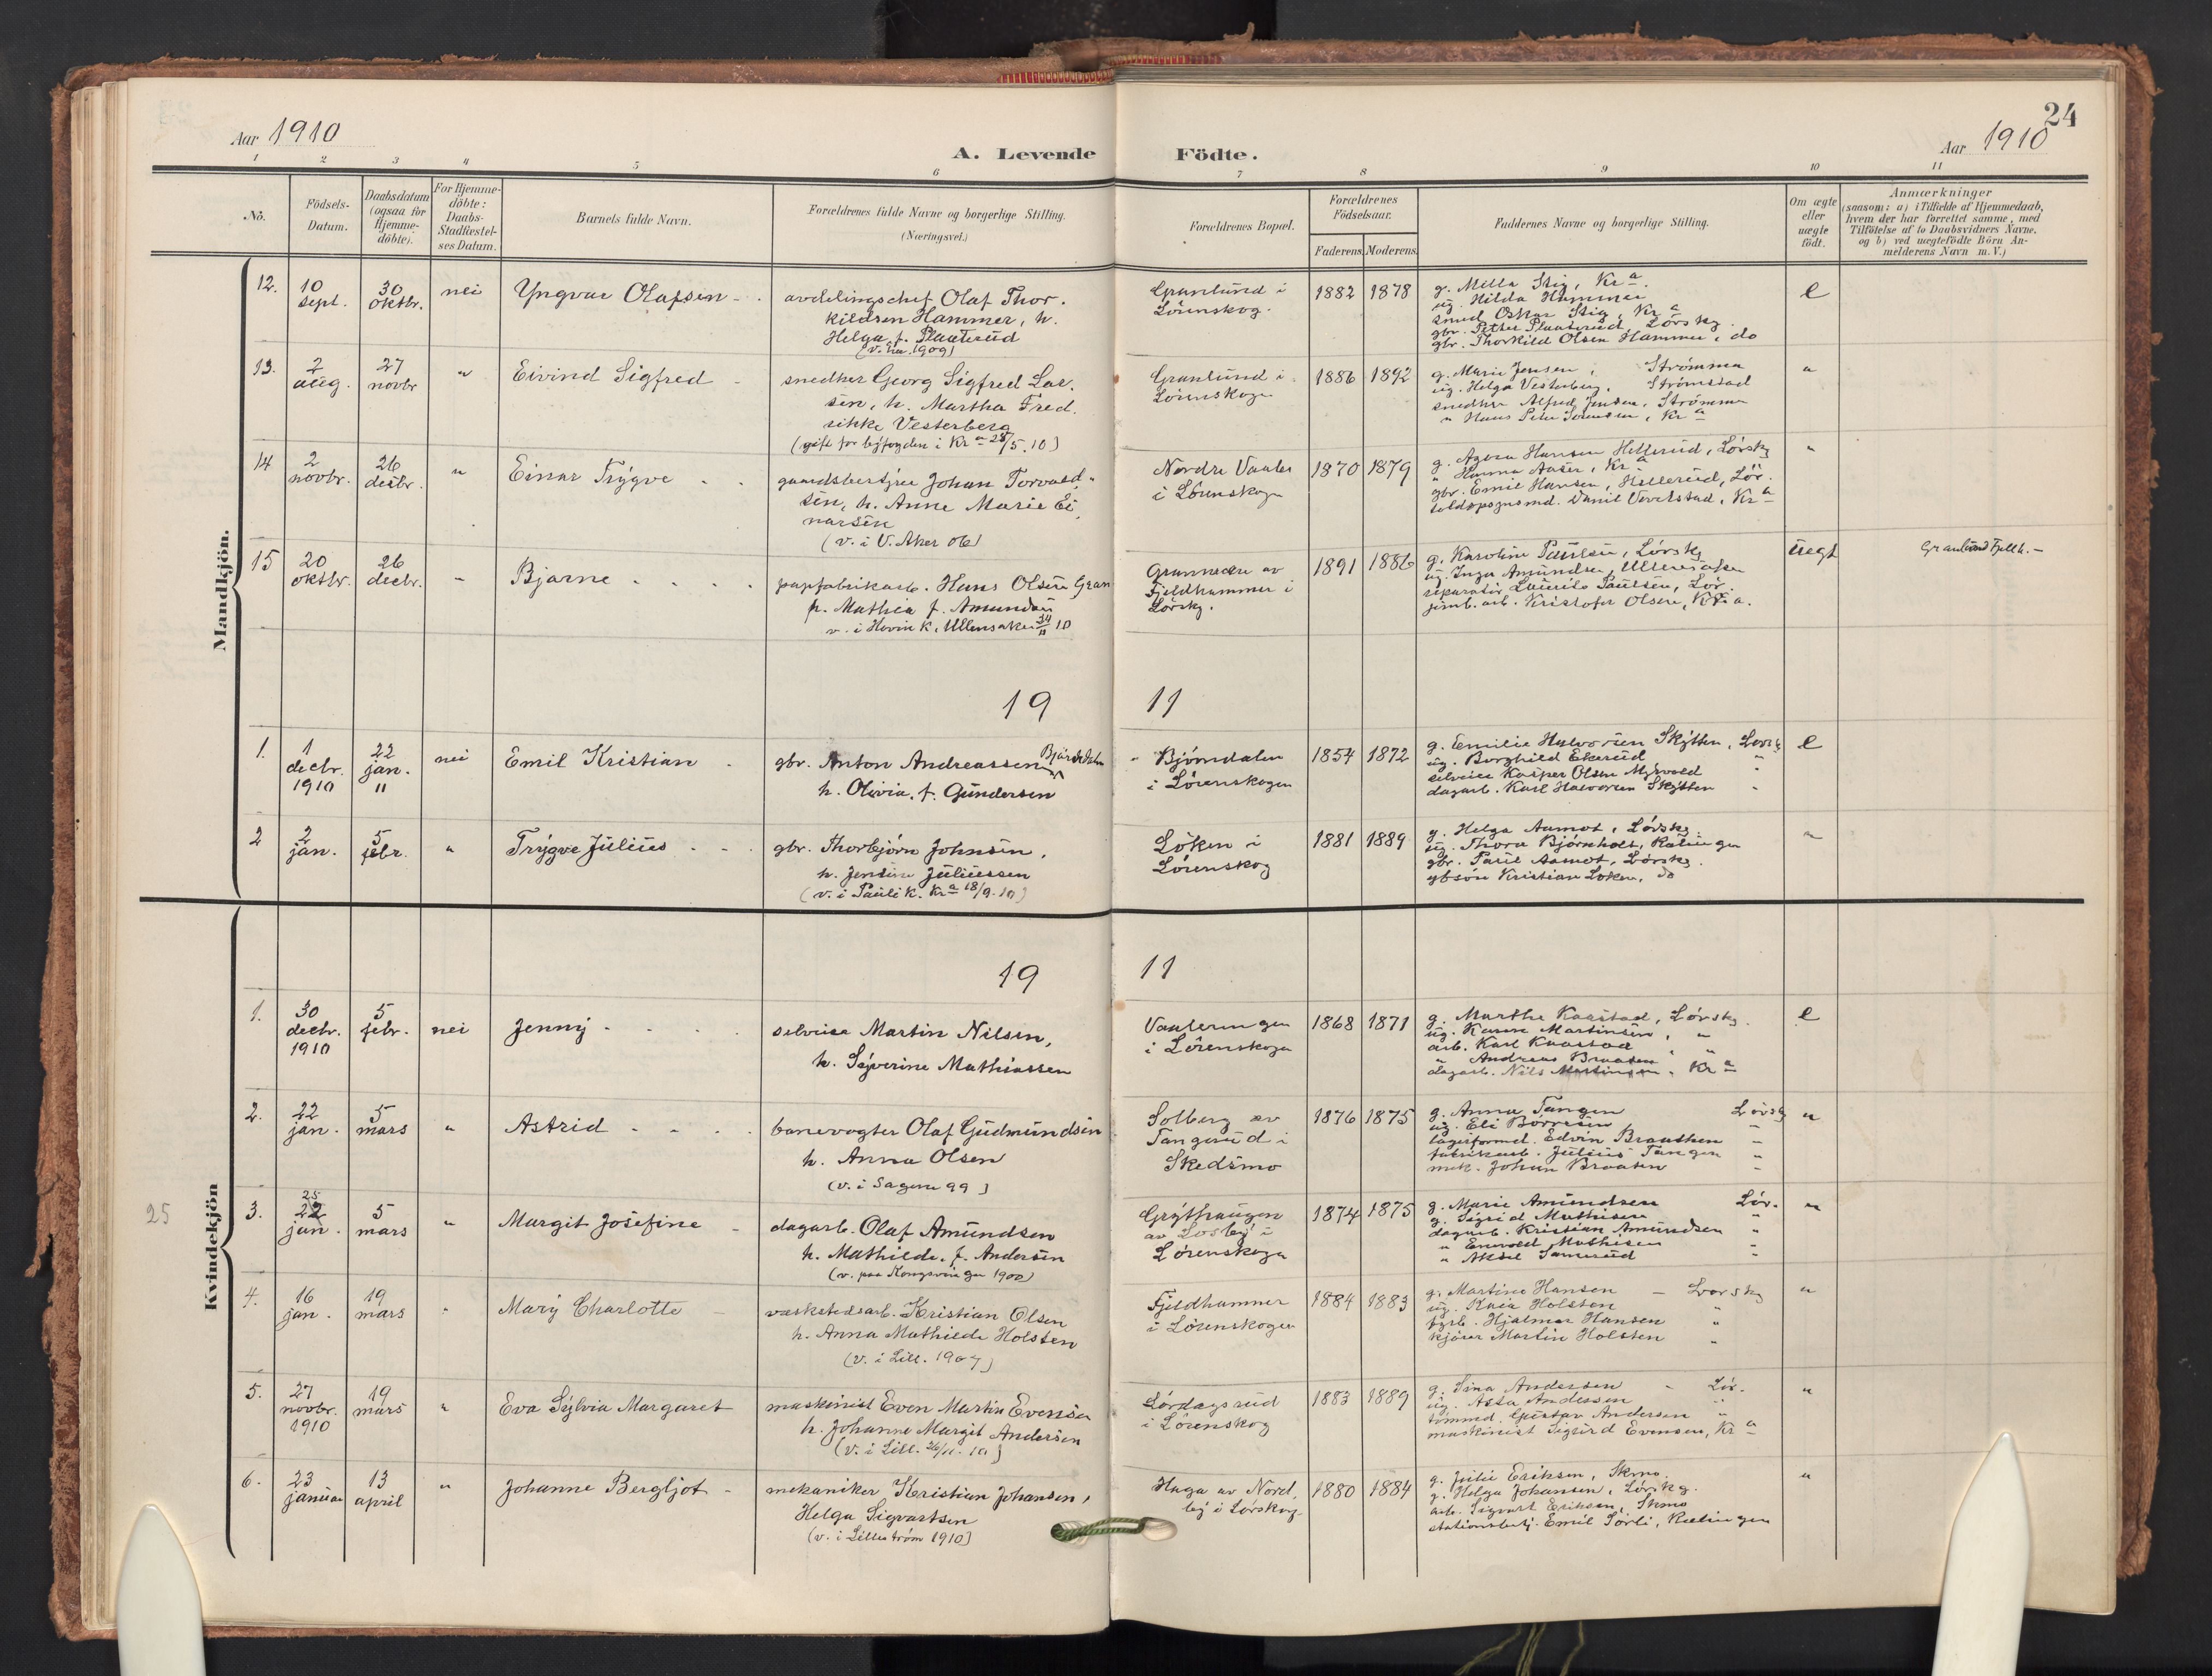 24
Aar 1910
A. Levende Födte.
Aar 1910
1 2 3 4 5 6 7 8 9 10 11
No.
Födsels-Datum.
Daabsdatum (ogsaa for Hjemme-döbte).
For Hjemme-döbte: Daabs-Stadfæstel-ses Datum.
Barnets fulde Navn.
Forældrenes fulde Navne og borgerlige Stilling.
(Næringsvei.)
Forældrenes Bopæl.
Forældrenes Födselsaar.
Faderens. Moderens.
Faddernes Navne og borgerlige Stilling.
Om ægte eller uægte födt.
Anmærkninger
(saasom: a) i Tilfælde af Hjemmedaab,
hvem der har forrettet samme, med
Tilföielse af to Daabsvidners Navne.
og b) ved uægtefödte Börn An-
melderens Navn m. V.)
Mandkjön.
12. 10 sept. 30 oktbr. nei Yngvar Olafsen
avdelingschef Olaf Thor-
kildsen Hammer, h.
Helga f. Plaaterud
1909)
Granlund i
Lörenskog.
1882 1878
g. Milla Stig, Kra.
ug. Hilda Hammer
smed Oskar Stig, Kra
gbr. Petter Plaaterud, Lörskg.
gbr. Thorkild Olsen Hammer, do
e
13. 2 aug. 27 novbr " Eivind Sigfred
snedker Georg Sigfred Lar-
sen, h. Martha Fred-
rikke Vesterberg
(gift for byfogden i Kra 28/5.10)
Granlund i
Lörenskogen
1886 1892
g. Marie Jensen, Strömmen
ug. Helga Vesterberg, Strömstad
snedker Alfred Jensen, Strömmen
" Hans Peter Sörensen, Kra
"
14 2 novbr. 26 decbr. " Einar Trygve
gaardsbestyrer Johan Torvald-
sen, h. Anne Marie Ei-
narsen
(v. i V. Aker 06)
Nordre Vaaler
i Lörenskogen
1870 1879
g. Agnes Hansen Hellerud, Lörskg
" Hanna Aaser, Kra
gbr. Emil Hansen, Hellerud, Lör.
toldopsynsmd. Daniel Kra
"
15 20 oktbr. 26 decbr. " Bjarne
papfabrikarb. Hans Olsen Gran
p. Mathea f. Amundsen
v. i Hovin k. Ullensaker 10
av
Fjeldhammer i
Lörskg.
1891 1886
g. Karoline Paulsen, Lörskg
ug. Inga Amundsen, Ullensaker
reparatör Laurits Paulsen, Lör.
jernb. arb. Kristofer Olsen, Kr.a.
uegt
Granlund Fjellh.
19 11
1. 1 decbr. 1910 22 jan. 11 nei Emil Kristian
gbr. Anton Andreassen Björndalen
h. Olivia, f. Gundersen
Björndalen
i Lörenskogen
1854 1872
g. Emilie Halvorsen Skytten, Lörskg
ug. Borghild Ekerud "
selveier Kasper Olsen Myrvold "
dagarb. Karl Halvorsen Skytten "
e
2 2 jan. 5 febr. " Trygve Julius
gbr. Thorbjörn Johnsen,
h. Jensine Juliussen
(v. i Pauls k. Kra 18/9.10)
Löken i
Lörenskog
1881 1889
g. Helga Aamot, Lörskg.
ug. Thora Bjørnholt, Rælingen
gbr. Paul Aamot, Lörskg.
gbsön Kristian Löken, do
"
Kvindekjön
19 11
1. 30 decbr. 1910 5 febr. nei Jenny
selveier Martin Nilsen,
h. Syverine Mathiassen
Vaaleringen
i Lörenskogen
1868 1871
g. Marthe Kaastad, Lörskg.
ug. Karen Martinsen, "
arb. Karl Kaastad "
" Andreas Braaten "
dagarb. Nils Martinsen, Kra
e
2. 22 jan. 5 mars " Astrid
banevogter Olaf Gudmundsen
h. Anna Olsen
(v. i Sagene 99)
Solberg av
Tangerud i
Skedsmo
1876 1875
g. Anna Tangen Lörskg
ug. Eli Börresen "
lagerformd. Edvin Braathen "
fabrikarb. Julius Tangen "
mek. Johan Braaten "
"
25
3. 25 22 jan. 5 mars " Margit Josefine
dagarb. Olaf Amundsen
h. Mathilde, f. Andersen
(v. paa Kongsvinger 1900)
Grythaugen
av Losby i
Lörenskogen
1874 1875
g. Marie Amundsen Lör.
g. Sigrid Mathisen "
dagarb. Kristian Amundsen "
" Mathisen "
" Aksel "
"
4. 16 jan. 19 mars " Mary Charlotte
verkstedsarb. Kristian Olsen
h. Anna Mathilde Holsten
(v. i Lill. 1907)
Fjeldhammer
i Lörenskogen
1884 1883
g. Martine Hansen Lörskg
ug. Kaia Holsten "
Hjalmar Hansen "
kjörer Martin Holsten "
"
5. 27 novbr. 1910 19 mars " Eva Sylvia Margaret
maskinist Even Martin Evensen
h. Johanne Margit Andersen
(v. i Lill. 26/11.10)
Lördagsrud
i Lörenskog
1883 1889
g. Sina Andersen Lör.
ug. Asta Andersen "
tömmd. Gustav Andersen "
maskinist Sigurd Evensen, Kra
"
6. 23 januar 13 april " Johanne Bergljot
mekaniker Kristian Johansen,
Helga Sigvartsen
(v. i Lilleström 1910)
Haga av Nord-
by i Lörskog
1880 1884
g. Julie Eriksen, Skmo.
g. Helga Johansen, Lörskg.
arb. Sigvart Eriksen, Skmo
stationsbetj. Emil Sörli, Rælingen
"